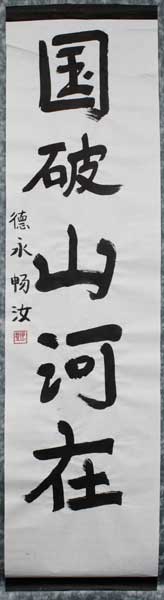 国破山河在
德永畅汝